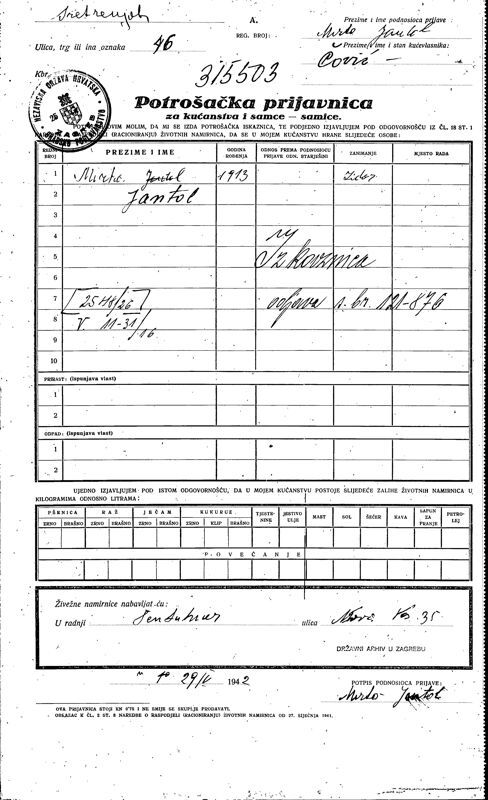 A.
Prezime i ime podnosioca prijave:
Mirko Jantol
Ulica, trg ili ina oznaka 46
REG. BROJ:
Prezime, ime i stan kućevlasnika:
Čović
Kbr.
315503
NEZAVISNA DRŽAVA HRVATSKA
ZAGREB
Potrošačka prijavnica
za kućanstva i samce — samice.
OVIM MOLIM, DA MI SE IZDA POTROŠAČKA ISKAZNICA, TE PODJEDNO IZJAVLJUJEM POD ODGOVORNOŠĆU IZ ČL. 18 ST. 1
(RACIONIRANJU) ŽIVOTNIH NAMIRNICA, DA SE U MOJEM KUĆANSTVU HRANE SLIJEDEĆE OSOBE:
REDNI BROJ PREZIME I IME GODINA ROĐENJA ODNOS PREMA PODNOSIOCU PRIJAVE ODN. STARJEŠINI ZANIMANJE MJESTO RADA
1 Mirko Jantol 1913 zidar
2 Jantol
3
4
5 Iskaznica
6
7 2548/26 odjava s. br. 121-876
8 V 11-31/16
9
10
PRIRAST: (ispunjava vlast)
1
2
OTPAD: (ispunjava vlast)
1
2
UJEDNO IZJAVLJUJEM POD ISTOM ODGOVORNOŠĆU, DA U MOJEM KUĆANSTVU POSTOJE SLIJEDEĆE ZALIHE ŽIVOTNIH NAMIRNICA U
KILOGRAMIMA ODNOSNO LITRAMA:
PŠENICA RAŽ JEČAM KUKURUZ TJESTENINE JESTIVO ULJE MAST SOL ŠEĆER KAVA SAPUN ZA PRANJE PETROLEJ
ZRNO BRAŠNO ZRNO BRAŠNO ZRNO BRAŠNO ZRNO KLIP BRAŠNO
POVEĆANJE
Živežne namirnice nabavljat ću:
U radnji ulica Nova 35
DRŽAVNI ARHIV U ZAGREBU
29/V 1942
POTPIS PODNOSIOCA PRIJAVE:
Mirko Jantol
OVA PRIJAVNICA STOJI KN 0'75 I NE SMIJE SE SKUPLJE PRODAVATI.
OBRAZAC K ČL. 2 ST. 2 NAREDBE O RASPODJELI (RACIONIRANJU) ŽIVOTNIH NAMIRNICA OD 27. SIJEČNJA 1941.